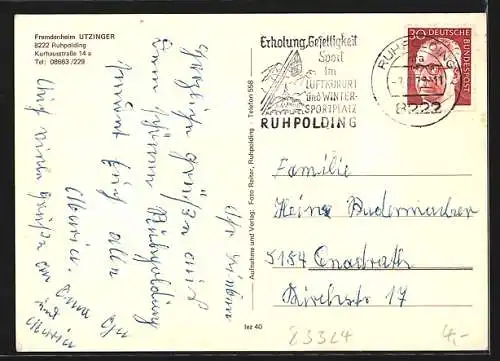 Fremdenheim UTZINGER
8222 Ruhpolding
Kurhausstraße 14 a
Tel: 08663/229
Ihr Lieben
Herzliche Grüße aus
dem schönen Ruhpolding
sendet Euch allen
Maria
Auch viele Grüße an Oma
und
Aufnahme und Verlag: Foto Reiter, Ruhpolding - Telefon 558
lez 40
Erholung, Geselligkeit
Sport
im
LUFTKURORT
und WINTER-
SPORTPLATZ
RUHPOLDING
RUHPOLDING
8222
30
DEUTSCHE BUNDESPOST
Familie
Heinz
5154 Quadrath
Kirchstr 17
23324
4,-